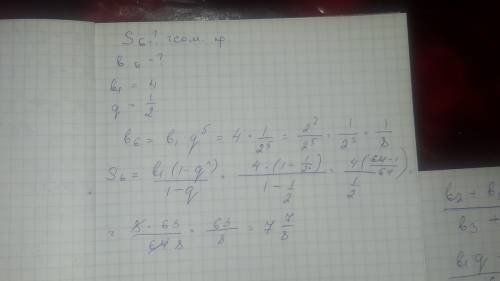 S₆-? геом. пр.
в₆ - ?
в₁ = 4
q = 1/2
в₆ = в₁ q⁵ = 4 · 1/2⁵ = 2²/2⁵ = 1/2³ = 1/8
S₆ = в₁(1-q⁶)/1-q = 4·(1-1/2⁶)/1-1/2 = 4(64-1/64)/1/2 =
= 8·63/64 8 = 63/8 = 7 7/8
в₂ + в
в₃ +
в₁q -